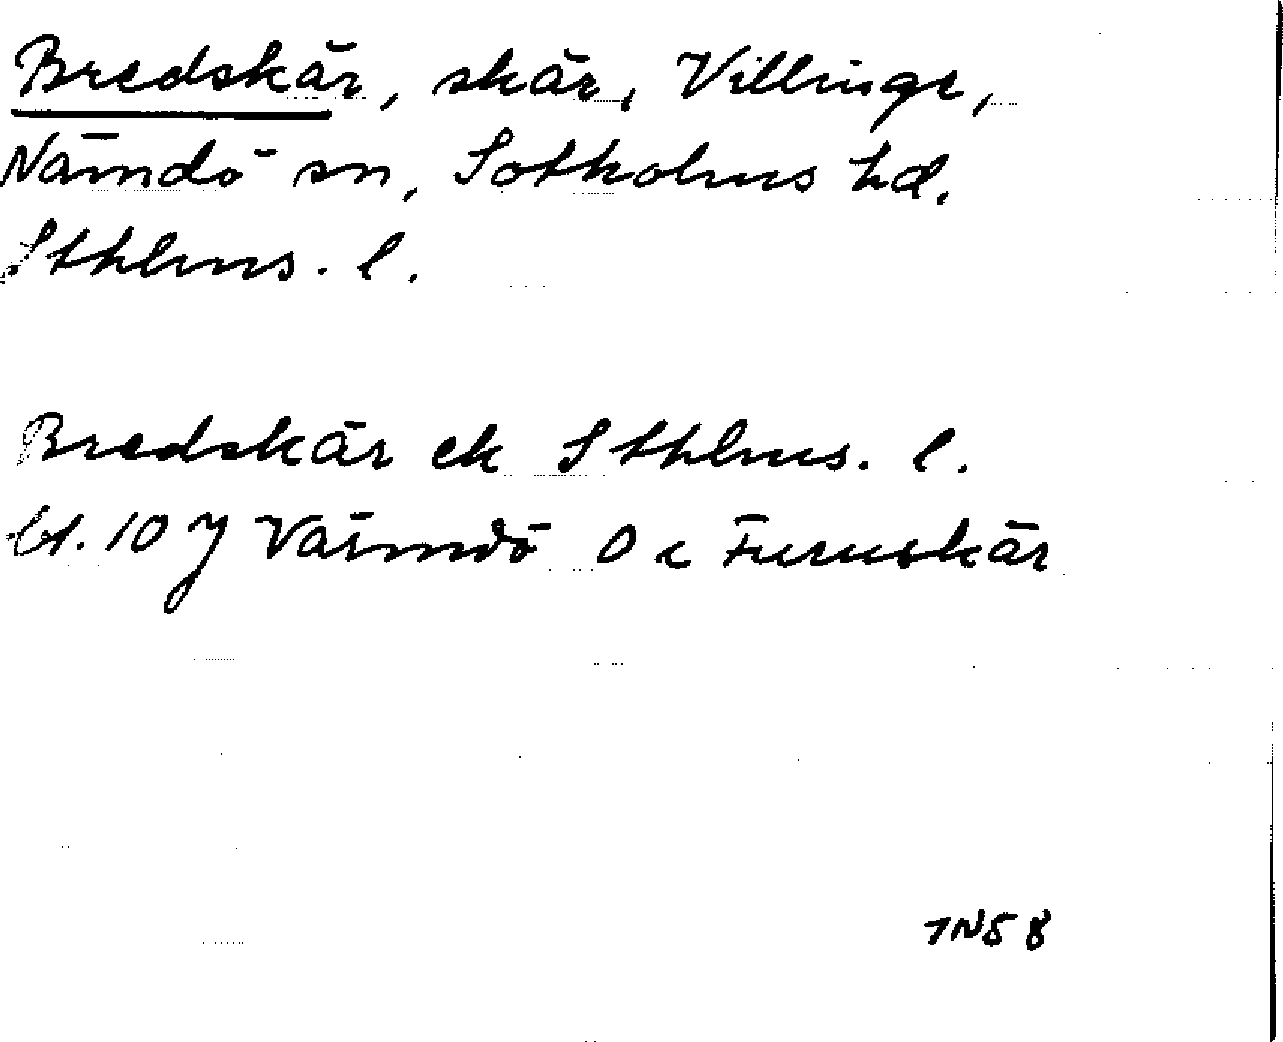 Bredskär, skär, Villinge,
Nämdö sn, Sotholms hd.
Sthlms. l.
Bredskär ek Sthlms. l.
bl. 10 Värmdö O i Furuskär
TN58